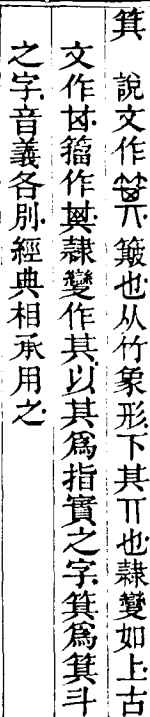 箕　說文作𥫶簸也从竹象形下其丌也隷變如上古
文作𠀠籀作𠔋隷變作其以其爲指實之字箕爲箕斗
之字音義各別經典相承用之